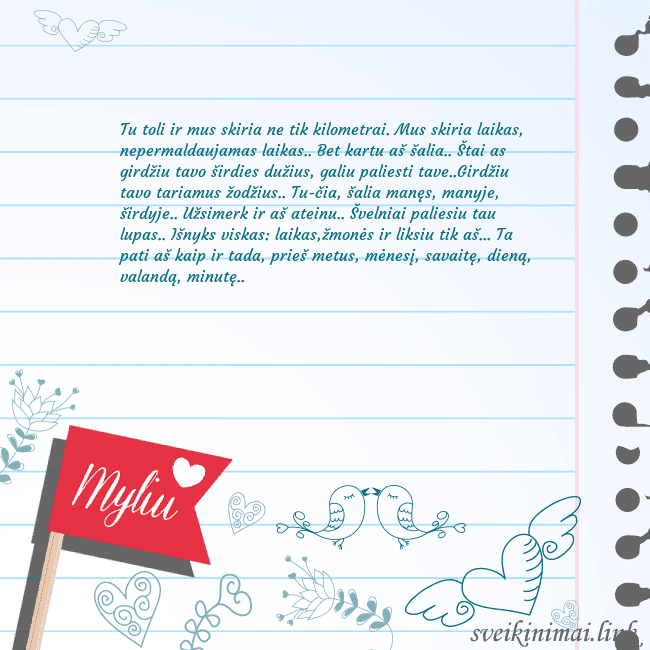 Tu toli ir mus skiria ne tik kilometrai. Mus skiria laikas,
nepermaldaujamas laikas.. Bet kartu aš šalia.. Štai as
girdžiu tavo širdies dužius, galiu paliesti tave..Girdžiu
tavo tariamus žodžius.. Tu-čia, šalia manęs, manyje,
širdyje.. Užsimerk ir aš ateinu.. Švelniai paliesiu tau
lupas.. Išnyks viskas: laikas,žmonės ir liksiu tik aš... Ta
pati aš kaip ir tada, prieš metus, mėnesį, savaitę, dieną,
valandą, minutę..
Myliu
sveikinimai.link